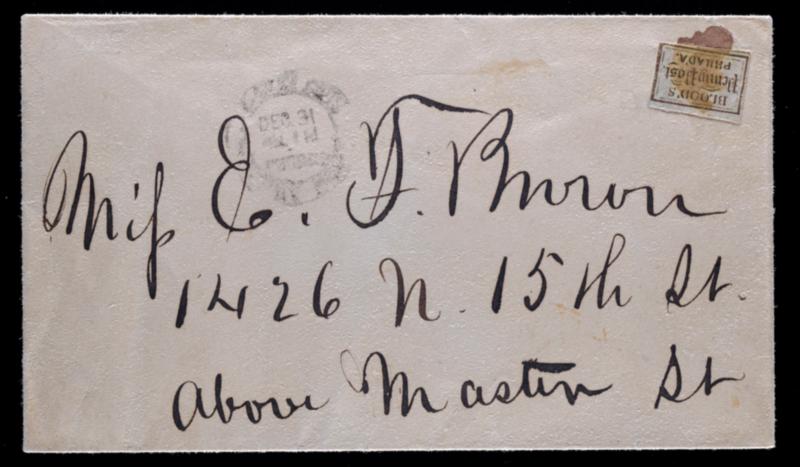 BLOOD'S
Penny Post,
PHILADA.
DEC 31
Miss E. F. Buron
1426 N. 15th St.
above Master St